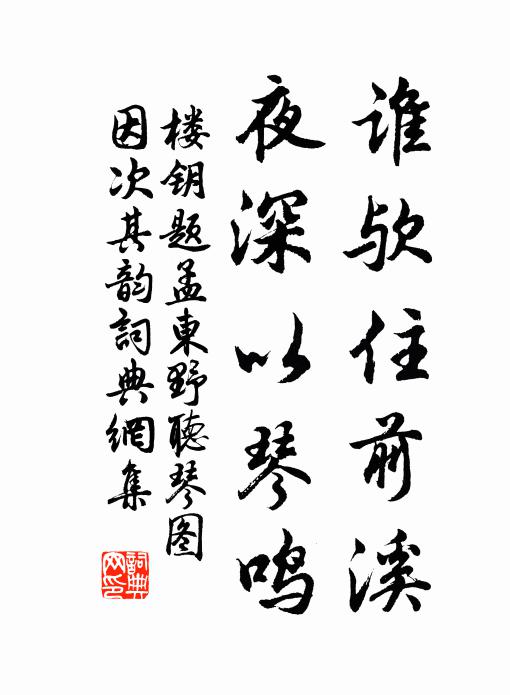 谁欤住前溪
夜深以琴鸣
楼钥题孟東野聽琴图
因次其韵詞典網集
詞典
网印